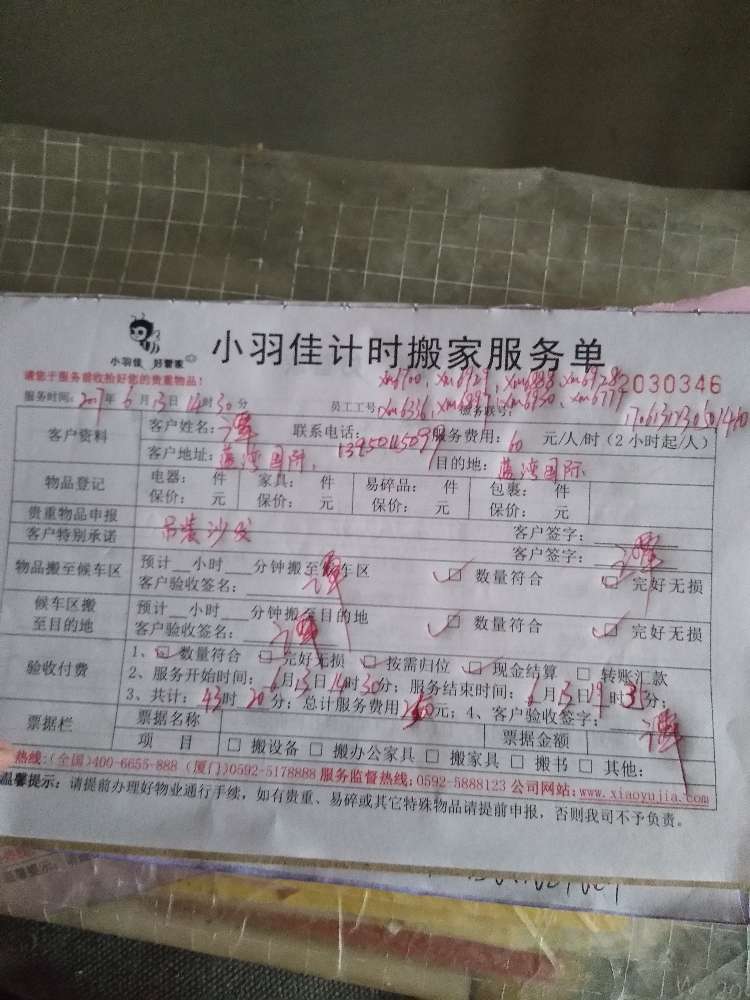 小羽佳 好管家
小羽佳计时搬家服务单
请您于服务前收拾好您的贵重物品!
2030346
服务时间: 2017年6月13日14时30分 员工工号
客户资料 客户姓名: 联系电话: 服务费用: 60 元/人/时 (2小时起/人)
客户地址: 蓝湾国际 目的地: 蓝湾国际
物品登记 电器: 件 家具: 件 易碎品: 件 包裹: 件
保价: 元 保价: 元 保价: 元 保价: 元
贵重物品申报 客户签字:
客户特别承诺 吊装沙发 客户签字:
物品搬至候车区 预计__小时__分钟搬至候车区 ☑ 数量符合 ☑ 完好无损
客户验收签名:
候车区搬至目的地 预计__小时__分钟搬至目的地 ☑ 数量符合 ☑ 完好无损
客户验收签名:
验收付费 1、☑ 数量符合 ☑ 完好无损 ☑ 按需归位 ☑ 现金结算 □ 转账汇款
2、服务开始时间: 6月13日14时30分; 服务结束时间: 6月13日19时35分;
3、共计: 43时20分; 总计服务费用2600元; 4、客户验收签字:
票据栏 票据名称 票据金额
项 目 □ 搬设备 □ 搬办公家具 □ 搬家具 □ 搬书 □ 其他:
热线:(全国)400-6655-888 (厦门)0592-5178888 服务监督热线:0592-5888123 公司网站:www.xiaoyujia.com
温馨提示: 请提前办理好物业通行手续, 如有贵重、易碎或其它特殊物品请提前申报, 否则我司不予负责。